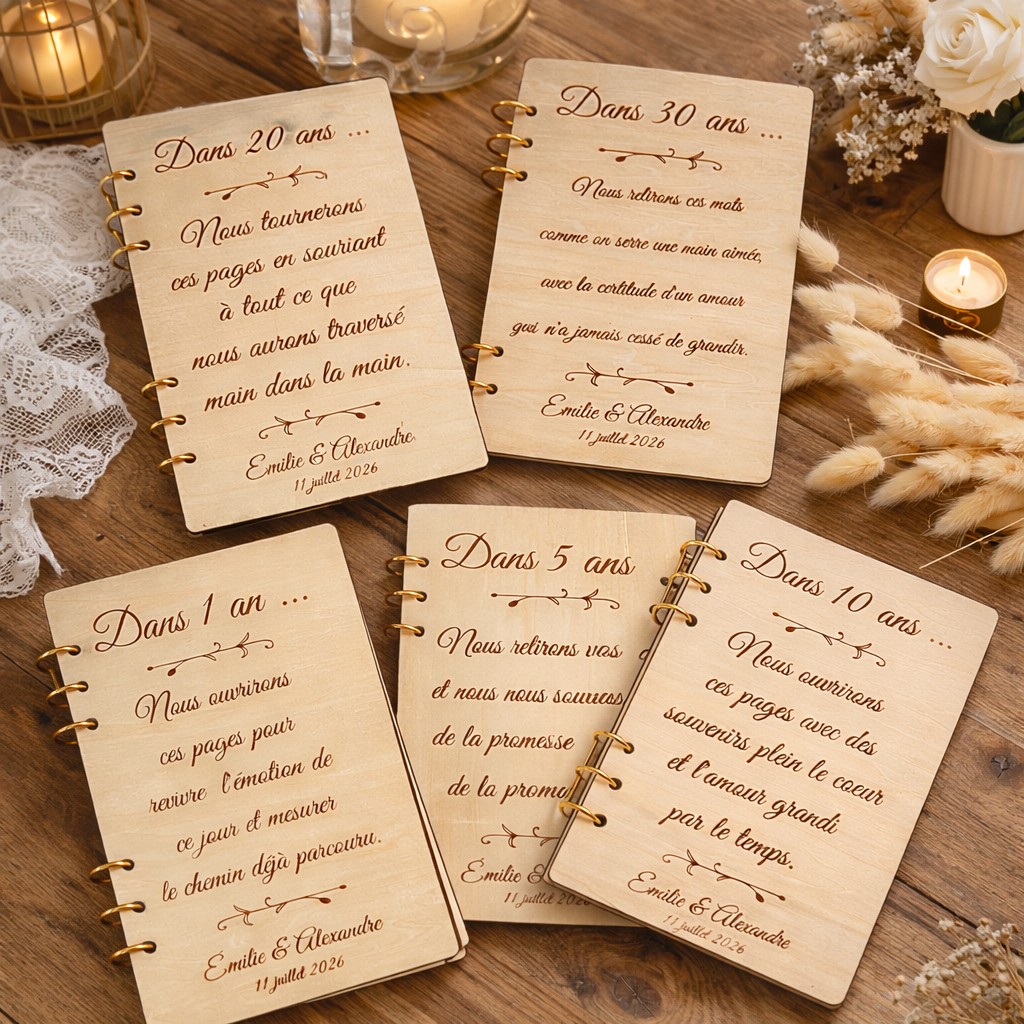 Dans 20 ans ...
Nous tournerons
ces pages en souriant
à tout ce que
nous aurons traversé
main dans la main.
Emilie & Alexandre
11 juillet 2026
Dans 30 ans ...
Nous relirons ces mots
comme on serre une main aimée,
avec la certitude d'un amour
qui n'a jamais cessé de grandir.
Emilie & Alexandre
11 juillet 2026
Dans 1 an ...
Nous ouvrirons
ces pages pour
revivre l'émotion de
ce jour et mesurer
le chemin déjà parcouru.
Émilie & Alexandre
11 juillet 2026
Dans 5 ans
Nous relirons vos
et nous nous
de la promesse
de la
Émilie &
11 juillet 202
Dans 10 ans ...
Nous ouvrirons
ces pages avec des
souvenirs plein le coeur
et l'amour grandi
par le temps.
Emilie & Alexandre
11 juillet 2026